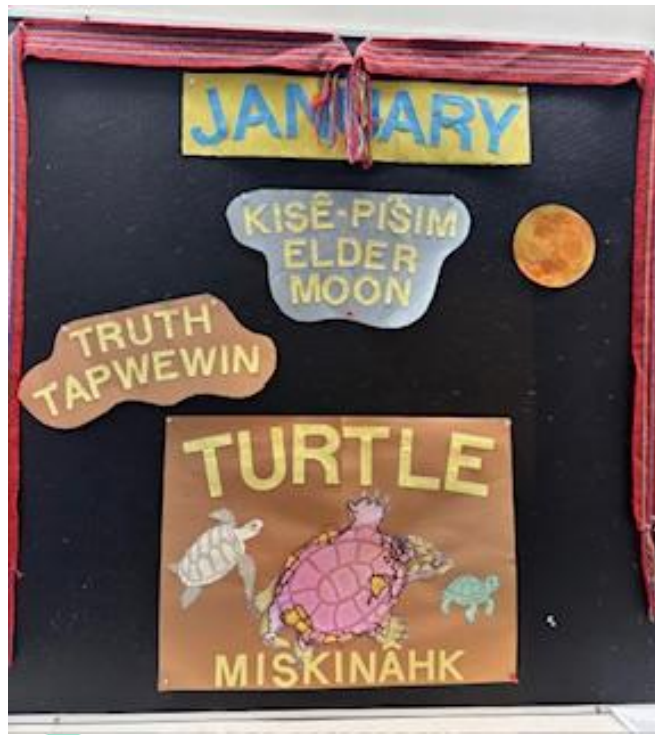 JANUARY
KISÊ-PÎŠIM
ELDER
MOON
TRUTH
TAPWEWIN
TURTLE
MIŠKINÂHK